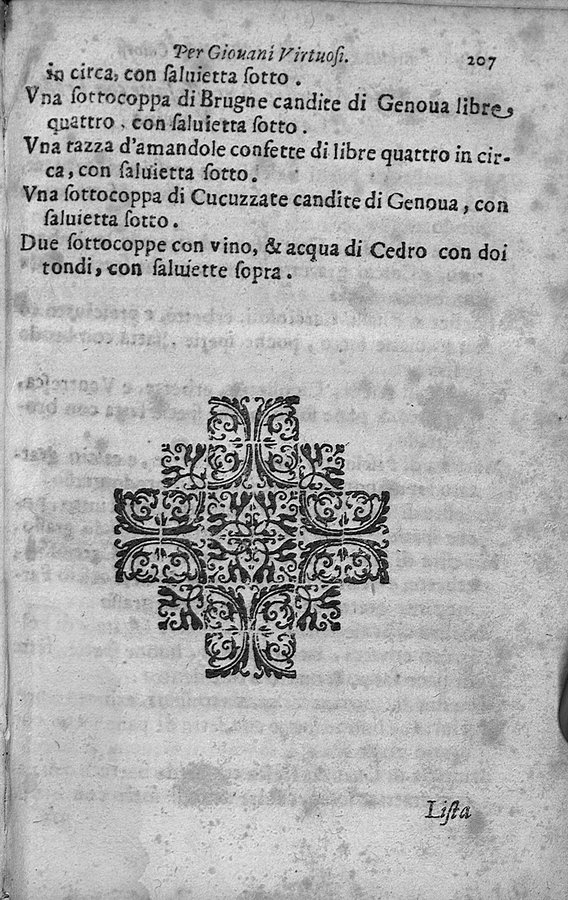 Per Giovani Virtuosi. 207
in circa, con ſaluietta ſotto .
Vna ſottocoppa di Brugne candite di Genoua libre
quattro , con ſaluietta ſotto .
Vna tazza d'amandole confette di libre quattro in cir-
ca, con ſaluietta ſotto .
Vna ſottocoppa di Cucuzzate candite di Genoua , con
ſaluietta ſotto .
Due ſottocoppe con vino, & acqua di Cedro con doi
tondi, con ſaluiette ſopra .
Liſta